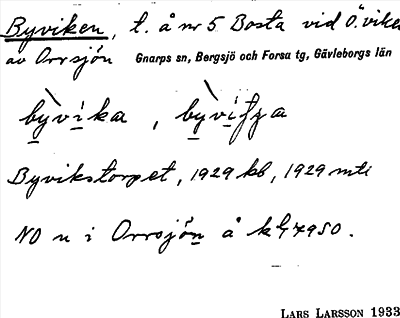 Byviken, t. å nr 5 Bosta vid Ö. viken
av Orrsjön Gnarps sn, Bergsjö och Forsa tg, Gävleborgs län
byvika, byviʃʒa
Byvikstorpet, 1929 kb, 1929 mtl
NO n i Orrsjön å
LARS LARSSON 1933